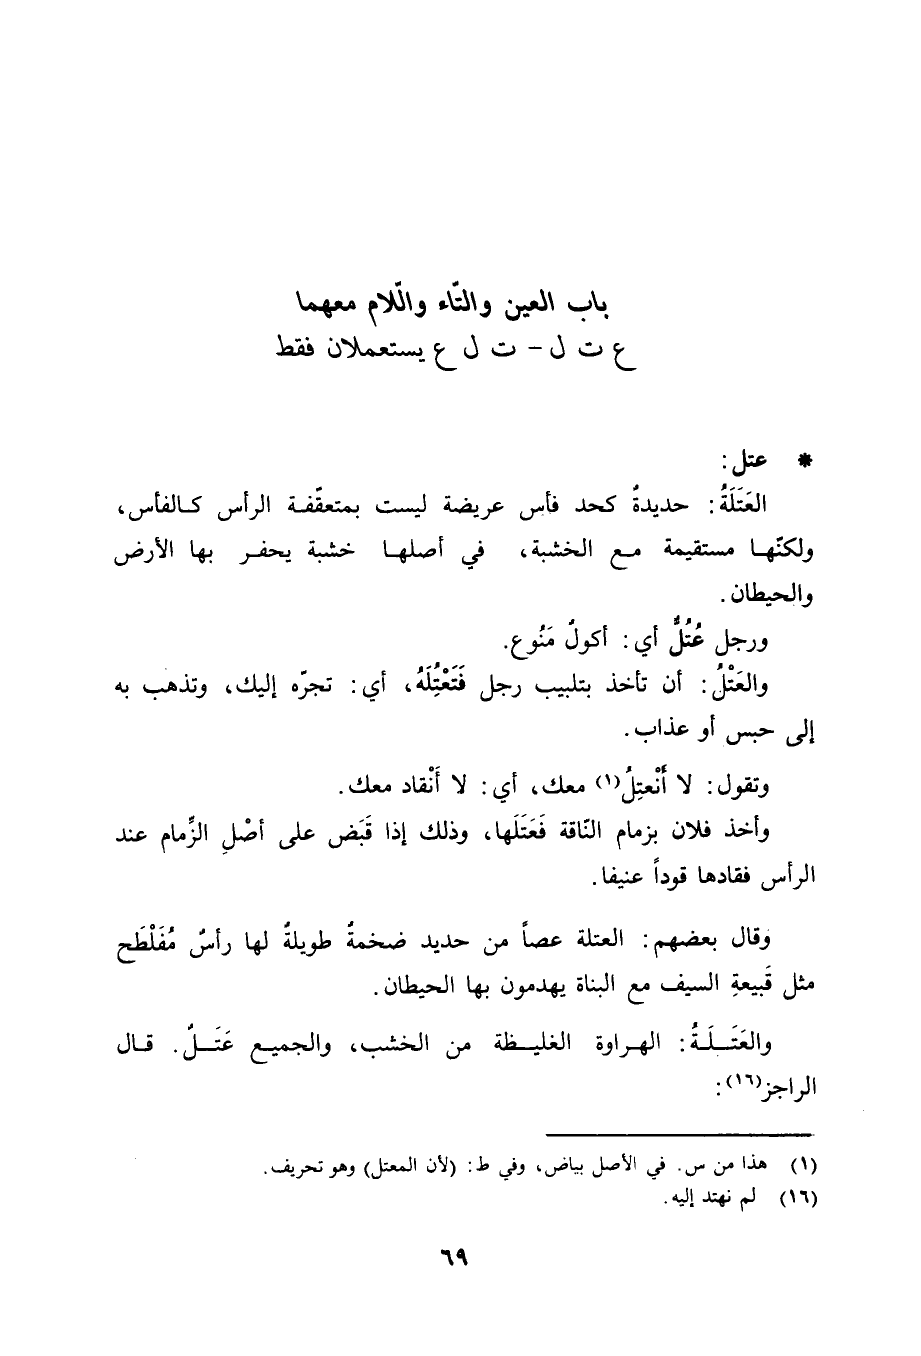 باب العين والتّاء والّلام معهما
ع ت ل – ت ل ع يستعملان فقط
* عتل:
العَتَلَةُ: حديدةٌ كحد فأس عريضة ليست بمتعقّفة الرأس كالفأس،
ولكنّها مستقيمة مع الخشبة، في أصلها خشبة يحفر بها الأرض
والحيطان.
ورجل عُتُلٌّ أي: أكولٌ مَنُوع.
والعَتْلُ: أن تأخذ بتلبيب رجل فَتَعْتِلَهُ، أي: تجرّه إليك، وتذهب به
إلى حبس أو عذاب.
وتقول: لا أَنْعتِلُ(١) معك، أي: لا أَنْقاد معك.
وأخذ فلان بزمام النّاقة فَعَتَلَها، وذلك إذا قَبَض على أصْلِ الزِّمام عند
الرأس فقادها قوداً عنيفا.
وقال بعضهم: العتلة عصاً من حديد ضخمةٌ طويلةٌ لها رأسٌ مُفَلْطَح
مثل قَبيعةِ السيف مع البناة يهدمون بها الحيطان.
والعَتَلَةُ: الهراوة الغليظة من الخشب، والجميع عَتَلٌ. قال
الراجز(١٦):
(١) هذا من س. في الأصل بياض، وفي ط: (لأن المعتل) وهو تحريف.
(١٦) لم نهتد إليه.
٦٩